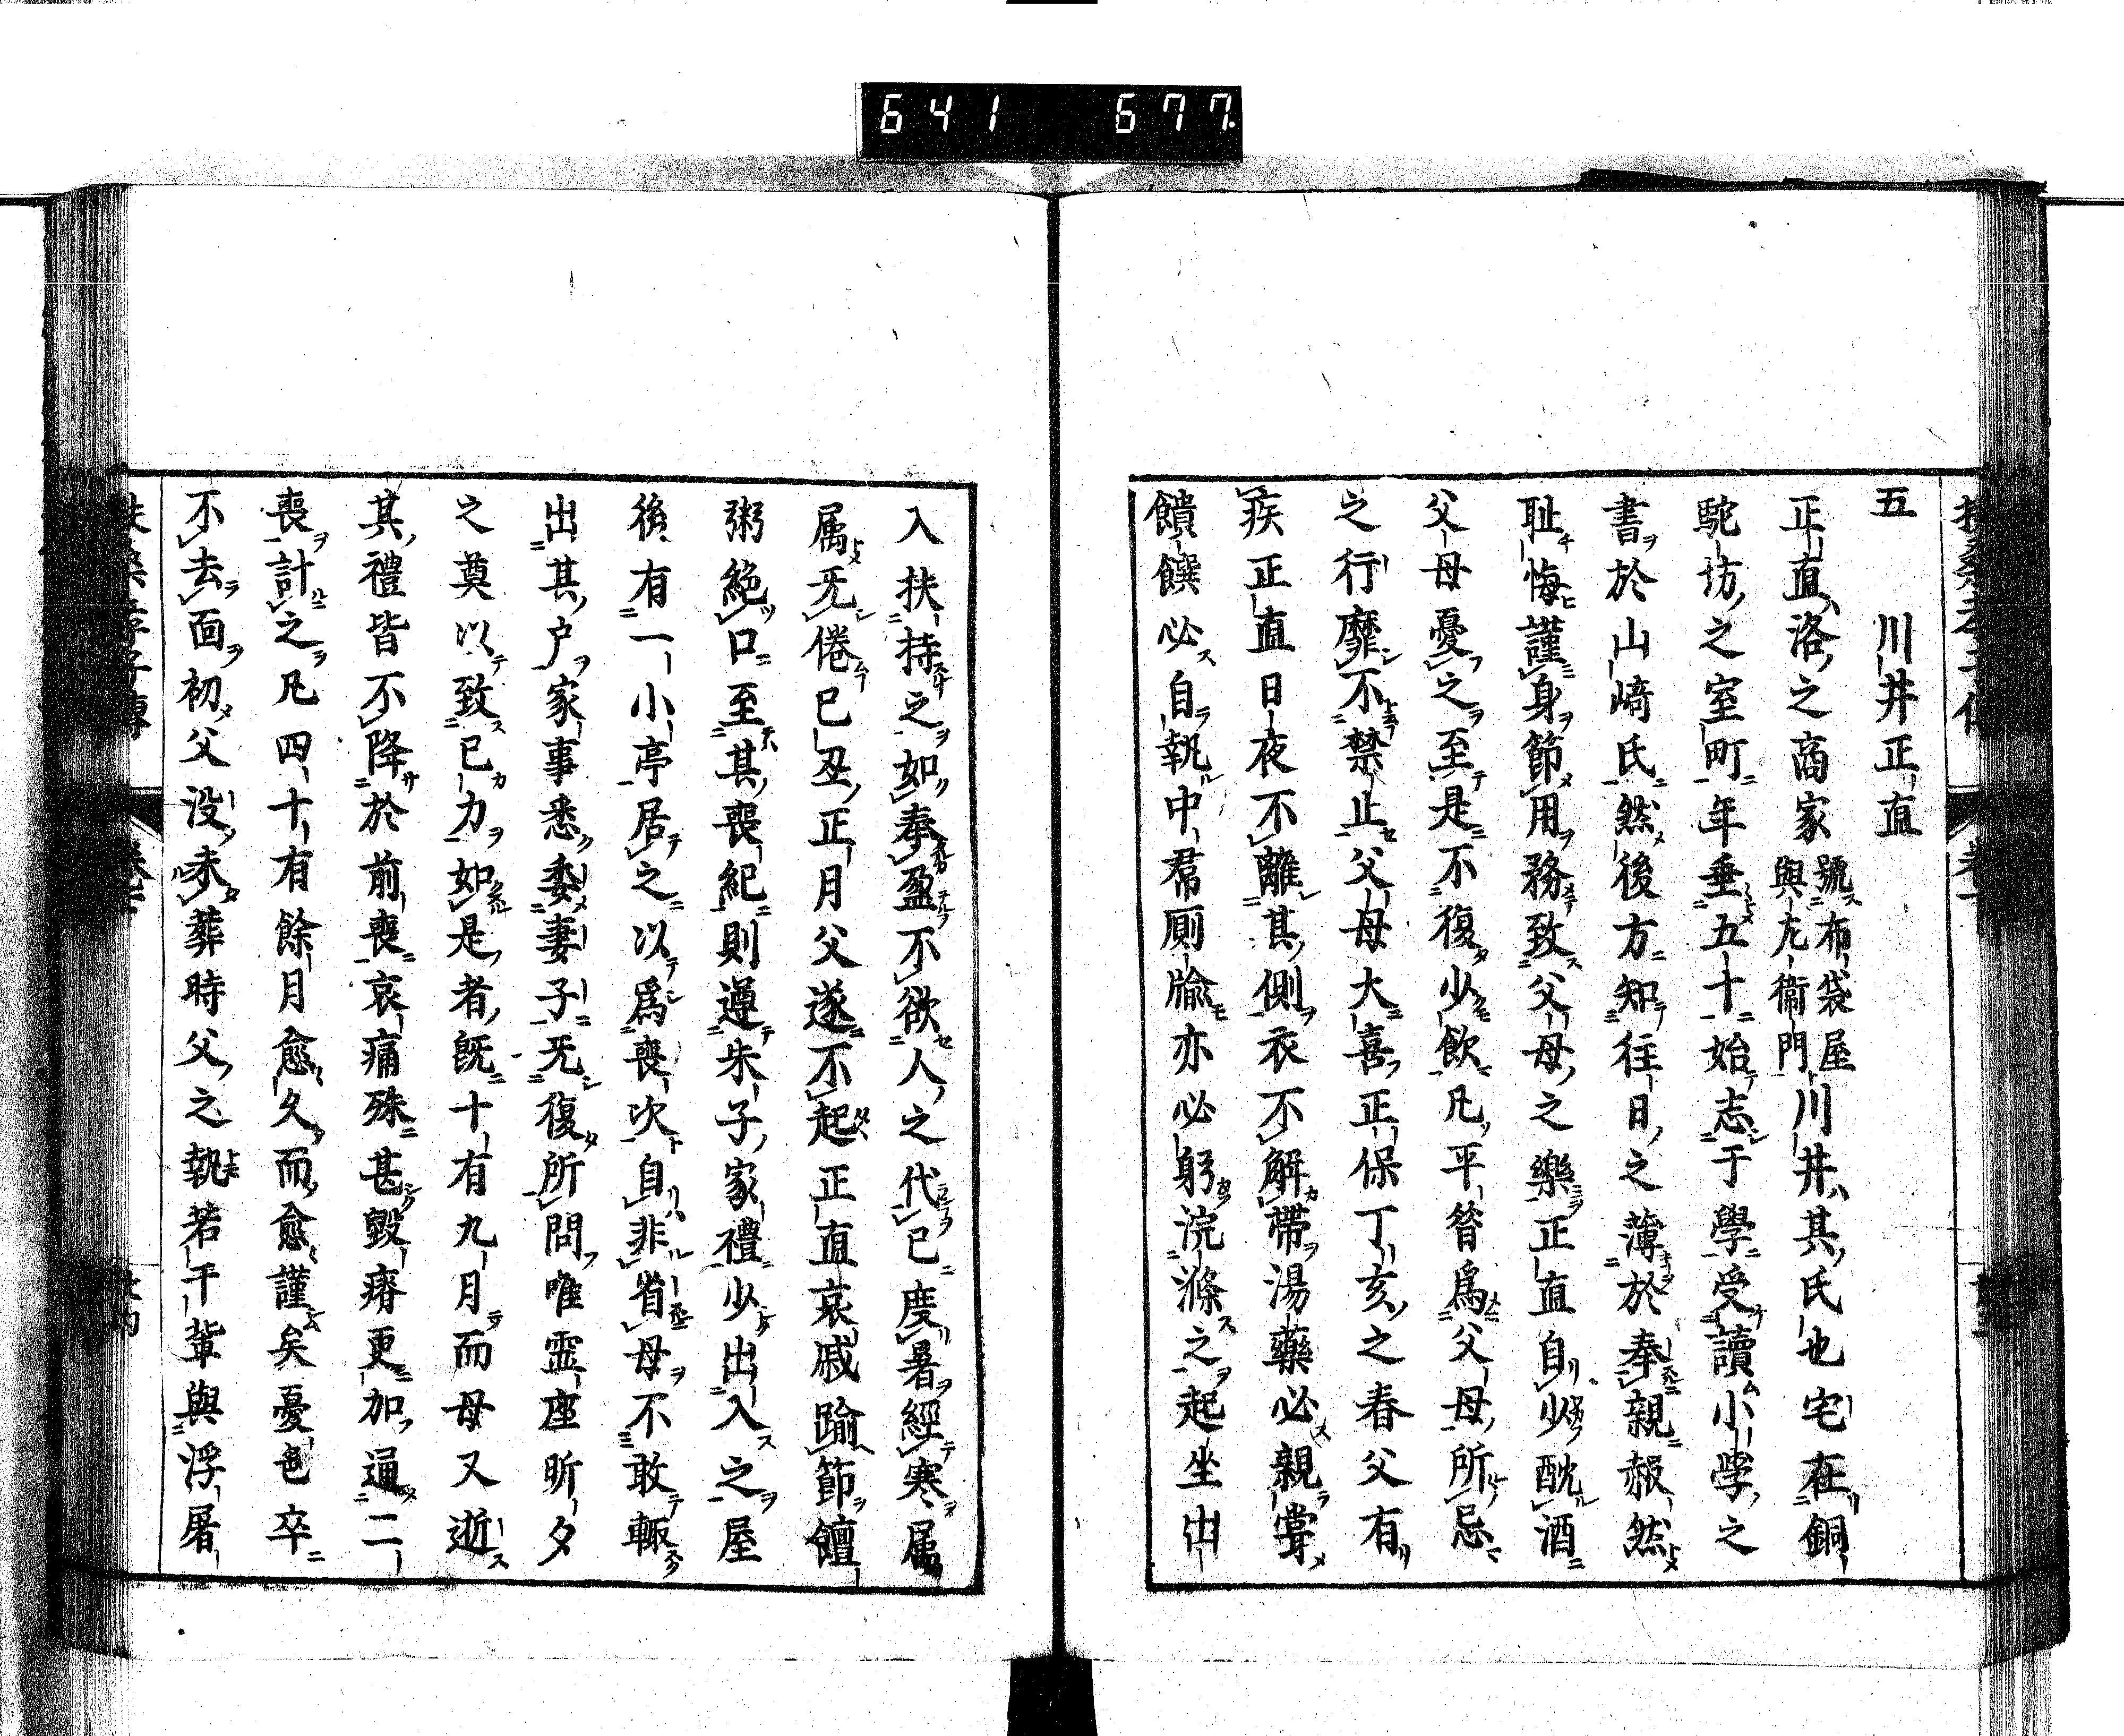 641 677
五 川井正直
正直洛之商家號布袋屋與左衞門川井其氏也宅在銅
駝坊之室町年垂五十始志于學受讀小學之
書於山﨑氏然後方知往日之薄於奉親赧然
耻悔謹身節用務致父母之樂正直自少酖酒
父母憂之至是不復少飲凡平昝爲父母所忌
之行靡不禁止父母大喜正保丁亥之春父有
疾正直日夜不離其側衣不解帶湯藥必親甞
饋饌必自執中帬厠牏亦必躬浣滌之起坐出
入扶持之如奉盈不欲人之代已度暑經寒属
属无倦已丑正月父遂不起正直哀戚踰節饘
粥絶口至其喪紀則遵朱子家禮少出入之屋
後有一小亭居之以爲喪次自非省母不敢輙
出其戸家事悉委妻子无復所問唯霊座昕夕
之奠以致已力如是者既十有九月而母又逝
其禮皆不降於前喪哀痛殊甚毀瘠更加通二
喪計之凡四十有餘月愈久而愈謹矣憂色卒
不去面初父没未葬時父之執若干輩與浮屠